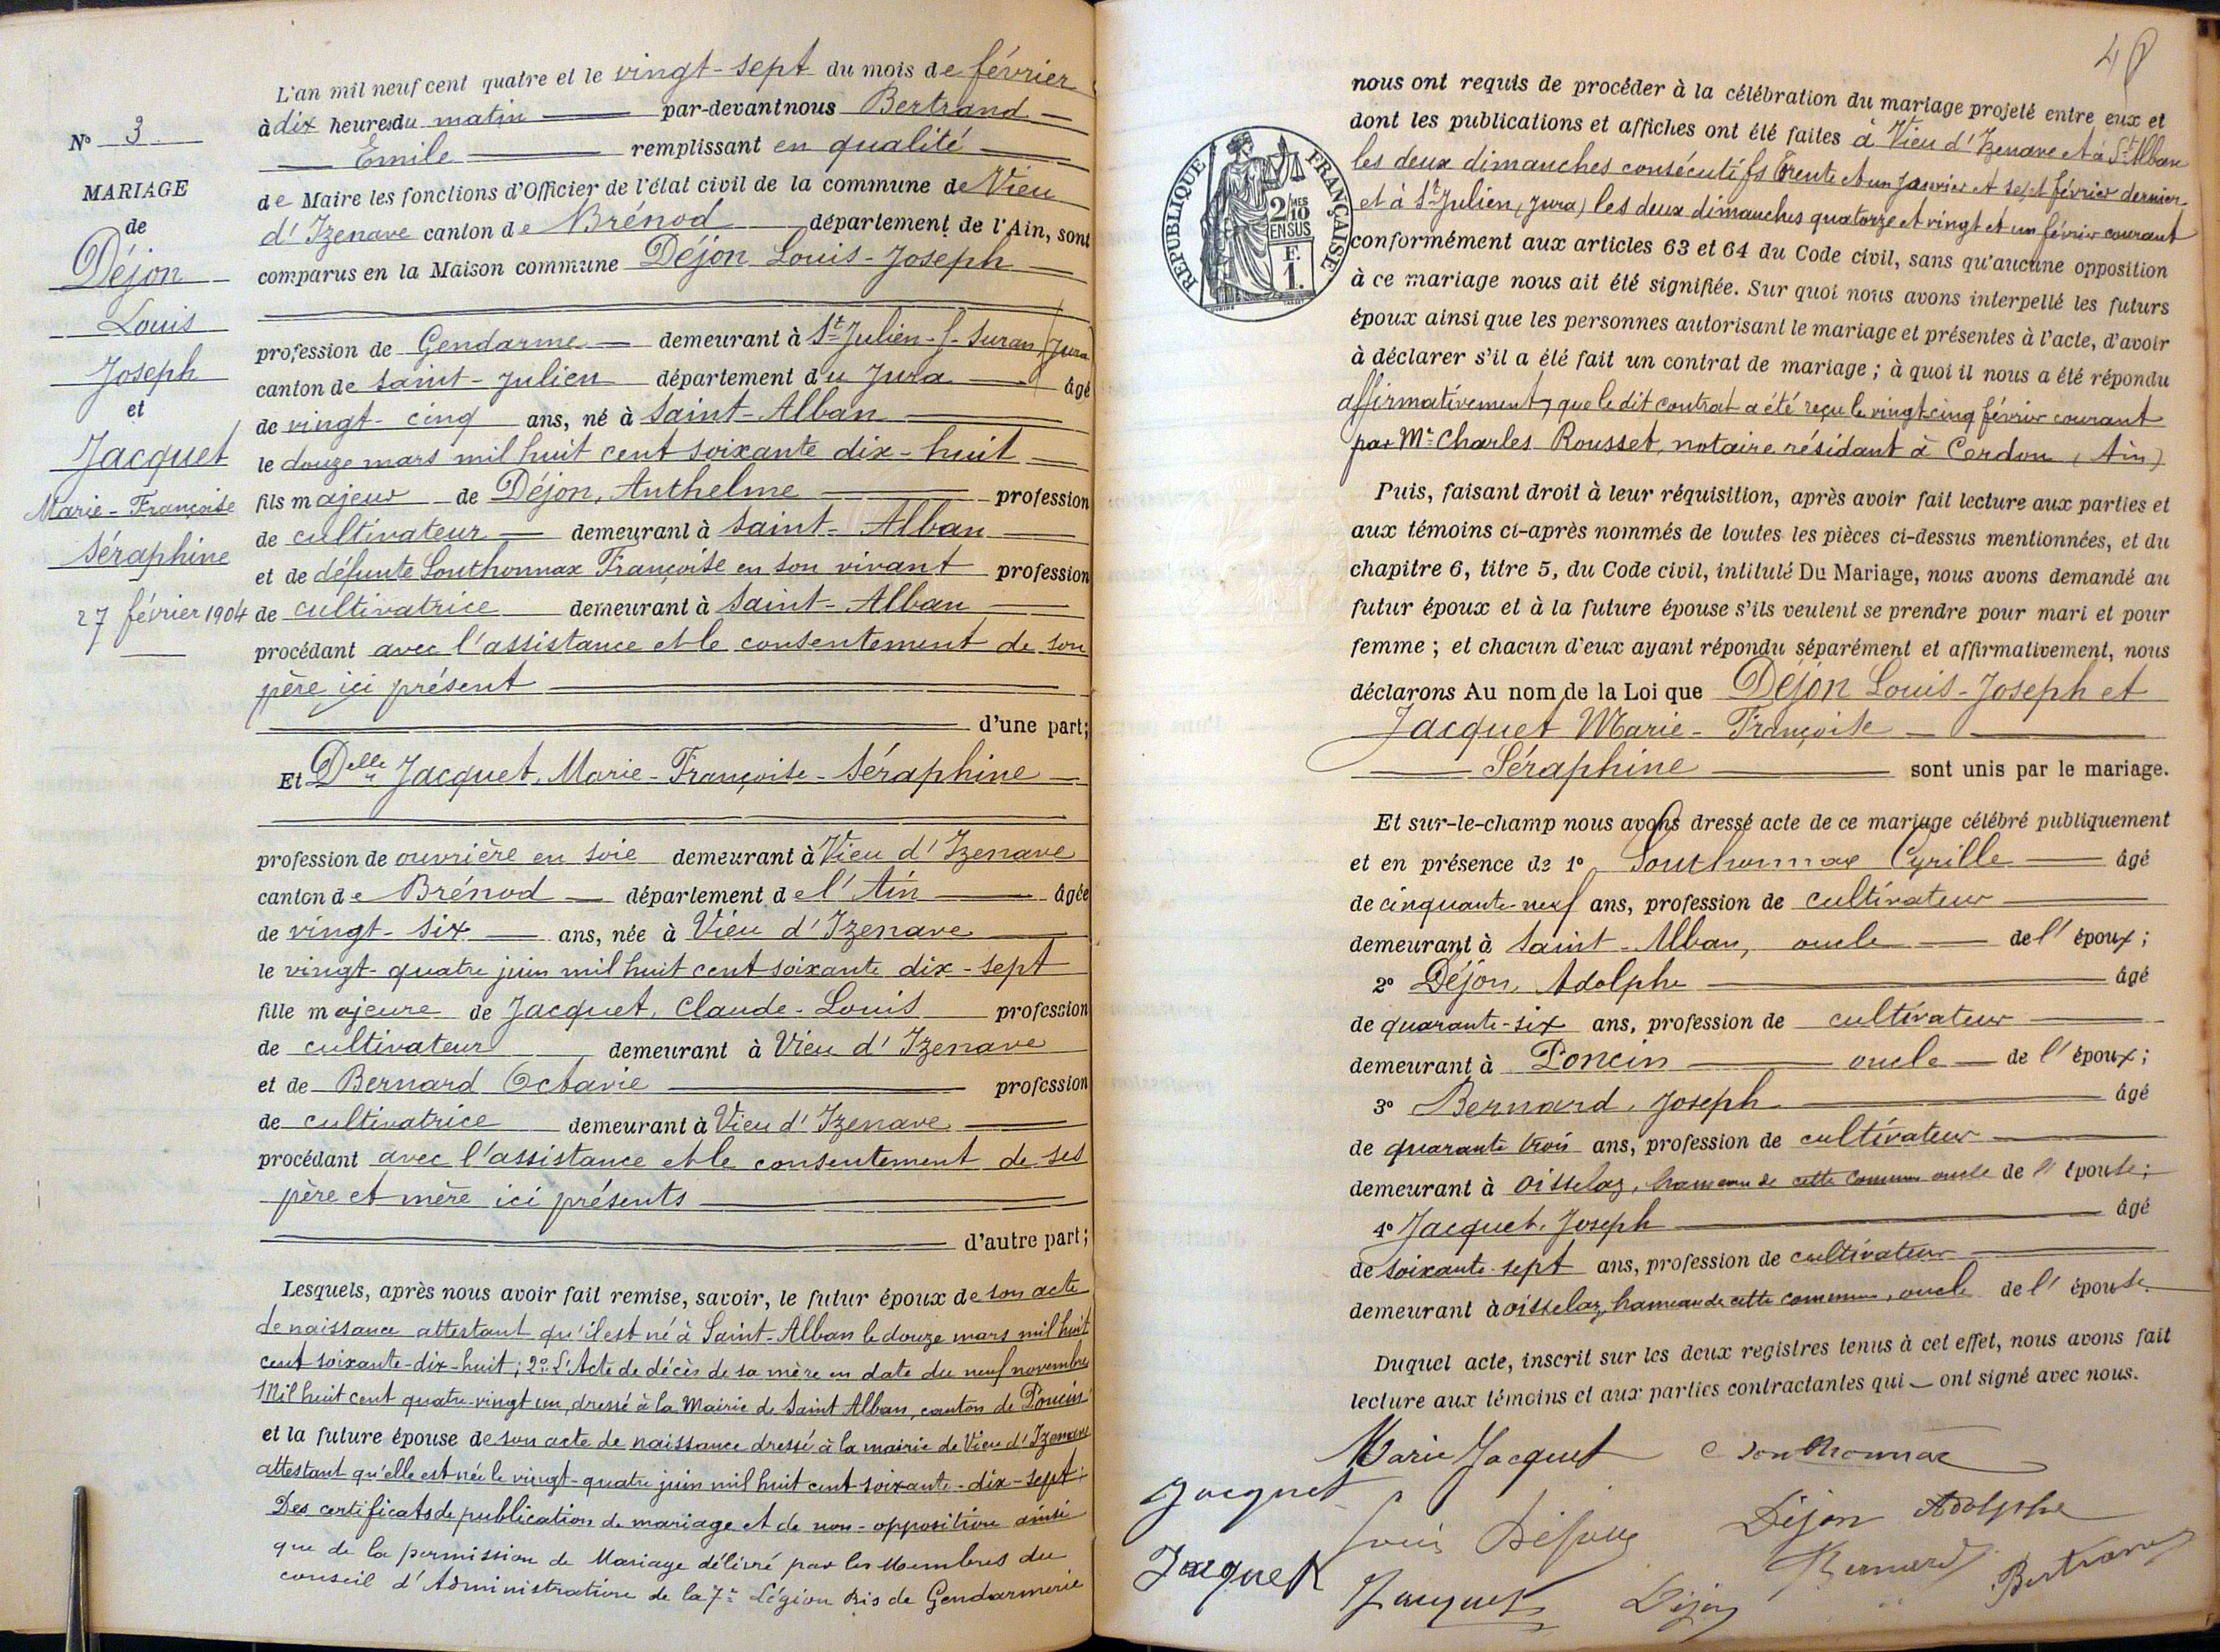 N° 3
MARIAGE
de
Déjon
Louis
Joseph
et
Jacquet
Marie-Françoise
Séraphine
27 février 1904
L'an mil neuf cent quatre et le vingt-sept du mois de février
à dix heures du matin par-devant nous Bertrand
Emile remplissant en qualité
de Maire les fonctions d'Officier de l'état civil de la commune de Vieu
d'Izenave canton de Brénod département de l'Ain, sont
comparus en la Maison commune Déjon Louis-Joseph
profession de Gendarme demeurant à St Julien-s-Suran (Jura)
canton de Saint-Julien département du Jura âgé
de vingt-cinq ans, né à Saint-Alban
le douze mars mil huit cent soixante dix-huit
fils majeur de Déjon, Anthelme profession
de cultivateur demeurant à Saint-Alban
et de défunte Southonnax Françoise en son vivant profession
de cultivatrice demeurant à Saint-Alban
procédant avec l'assistance et le consentement de son
père ici présent
d'une part;
Et Delle Jacquet, Marie-Françoise-Séraphine
profession de ouvrière en soie demeurant à Vieu d'Izenave
canton de Brénod département de l'Ain âgée
de vingt-six ans, née à Vieu d'Izenave
le vingt-quatre juin mil huit cent soixante dix-sept
fille majeure de Jacquet, Claude-Louis profession
de cultivateur demeurant à Vieu d'Izenave
et de Bernard Octavie profession
de cultivatrice demeurant à Vieu d'Izenave
procédant avec l'assistance et le consentement de ses
père et mère ici présents
d'autre part;
Lesquels, après nous avoir fait remise, savoir, le futur époux de son acte
de naissance attestant qu'il est né à Saint-Alban le douze mars mil huit
cent soixante-dix-huit; 2° L'Acte de décès de sa mère en date du neuf novembre
Mil huit cent quatre-vingt un, dressé à la Mairie de Saint Alban, canton de Poncin
et la future épouse de son acte de naissance dressé à la mairie de Vieu d'Izenave
attestant qu'elle est née le vingt-quatre juin mil huit cent soixante-dix-sept;
Des certificats de publication de mariage et de non-opposition ainsi
que de la permission de Mariage délivré par les Membres du
conseil d'Administration de la 7e Légion Bis de Gendarmerie
48
RÉPUBLIQUE FRANÇAISE
2/10 MES
EN SUS
F.
1.
nous ont requis de procéder à la célébration du mariage projeté entre eux et
dont les publications et affiches ont été faites à Vieu d'Izenave et à St Alban
les deux dimanches consécutifs trente et un janvier et sept février dernier
et à St Julien, (Jura) les deux dimanches quatorze et vingt et un février courant
conformément aux articles 63 et 64 du Code civil, sans qu'aucune opposition
à ce mariage nous ait été signifiée. Sur quoi nous avons interpellé les futurs
époux ainsi que les personnes autorisant le mariage et présentes à l'acte, d'avoir
à déclarer s'il a été fait un contrat de mariage; à quoi il nous a été répondu
affirmativement, que le dit contrat a été reçu le vingt-cinq février courant
par Me Charles Rousset, notaire résidant à Cerdon, (Ain)
Puis, faisant droit à leur réquisition, après avoir fait lecture aux parties et
aux témoins ci-après nommés de toutes les pièces ci-dessus mentionnées, et du
chapitre 6, titre 5, du Code civil, intitulé Du Mariage, nous avons demandé au
futur époux et à la future épouse s'ils veulent se prendre pour mari et pour
femme; et chacun d'eux ayant répondu séparément et affirmativement, nous
déclarons Au nom de la Loi que Déjon Louis-Joseph et
Jacquet Marie-Françoise
Séraphine sont unis par le mariage.
Et sur-le-champ nous avons dressé acte de ce mariage célébré publiquement
et en présence de 1° Southonnax Cyrille âgé
de cinquante-neuf ans, profession de cultivateur
demeurant à Saint-Alban, oncle de l'époux;
2° Déjon, Adolphe âgé
de quarante-six ans, profession de cultivateur
demeurant à Poncin oncle de l'époux;
3° Bernard, Joseph âgé
de quarante trois ans, profession de cultivateur
demeurant à Oisselaz, hameau de cette commune oncle de l'épouse;
4° Jacquet, Joseph âgé
de soixante-sept ans, profession de cultivateur
demeurant à Oisselaz, hameau de cette commune, oncle de l'épouse.
Duquel acte, inscrit sur les deux registres tenus à cet effet, nous avons fait
lecture aux témoins et aux parties contractantes qui ont signé avec nous.
Marie Jacquet C Southonnax
Jacquet Louis Déjon Déjon Adolphe
Jacquet Jacquet Déjon Bernard Bertrand